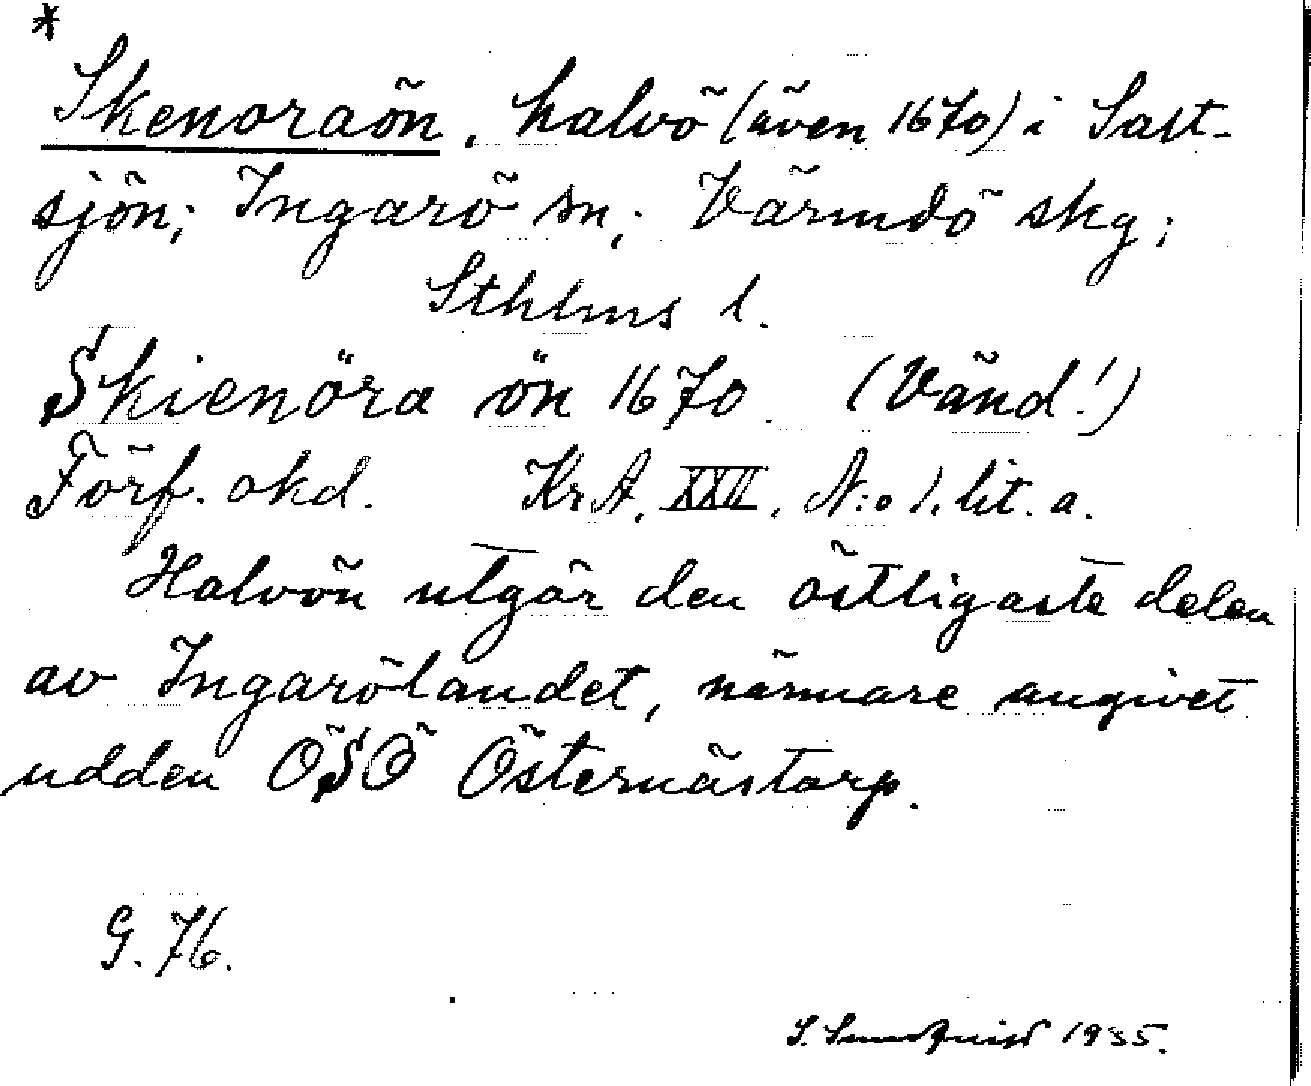 *
Skenoraön, halvö (även 1670) i Salt-
sjön; Ingarö sn; Värmdö skg;
Sthlms l.
Skienöra ön 1670. (Vänd!)
Förf. okd. KrA, XXII, N:o 1, lit. a.
Halvön utgör den östligaste delen
av Ingarölandet, närmare angivet
udden ÖSÖ Östernästorp.
G. 76.
S. 1935.